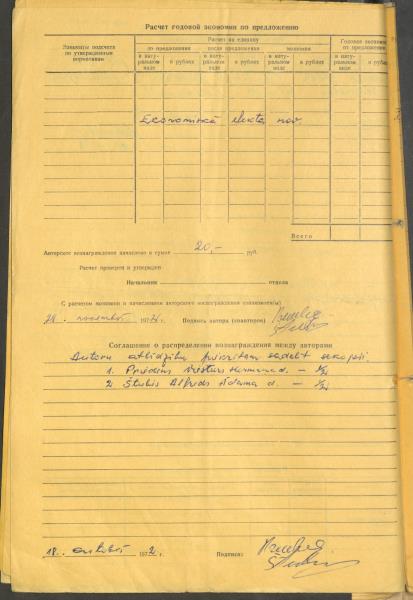 Расчет годовой экономии по предложению
Элементы подсчета по утвержденным нормативам
Расчет на единицу
Годовая эконом
по предложению
до предложения
после предложения
экономия
в натуральном виде
в рублях
в натуральном виде
в рублях
в натуральном виде
в рублях
в натуральном виде
в рубл
Ekonomiskā efekta nav.
Всего
Авторское вознаграждение начислено в сумме 20,- руб.
Расчет проверен и утвержден
Начальник отдела
С расчетом экономии и начислением авторского вознаграждения ознакомлен(ы)
novembrī 197
Подпись автора (соавторов)
Соглашение о распределении вознаграждения между авторами
Autoru atlīdzību sadalīt sekojoši.
1. Priedēns Viesturs Hermaņa d. — 1/2
2. Stubis Alfrēds Ādama d. — 1/2
18. oktobrī 1972.
Подписи: